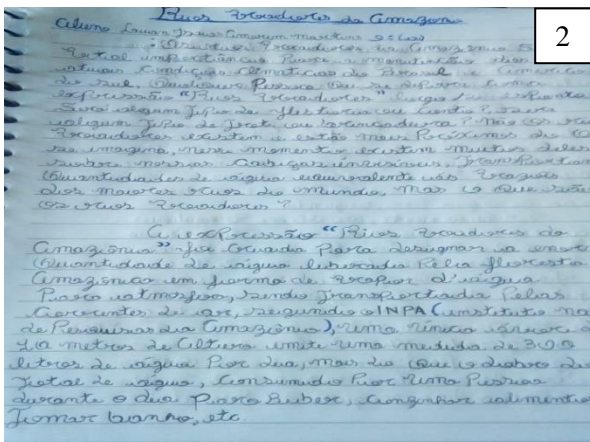 Rios voadores da Amazônia
2
Aluno Lauan Amorim martins 9º (a)
Os rios voadores da Amazônia
importância Para a manutenção das
atuais Condições climáticas do Brasil e América
do sul. Qualquer Pessoa que se depara com a
expressão "Rios voadores" logo se espanta
Será algum Tipo de ou conto? será
algum Tipo de ou brincadeira? Não os
voadores existem e estão mais Próximos do
se imagina, nesse momento existem muitos deles
sobre nossas Cabeças invisíveis, Transportam
Quantidades de água equivalente às vazões
dos maiores rios do mundo, mas o Que são
os rios voadores?
A expressão "Rios voadores da
Amazônia" foi Criada Para designar a
Quantidade de água liberada Pela floresta
Amazônica em forma de vapor d'água
Para atmosfera, sendo Transportada Pelas
Correntes de ar, segundo o INPA (instituto
de Pesquisas da Amazônia), uma única árvore
10 metros de Altura emite uma medida de 300
litros de água Por dia, mas do Que o dobro do
Total de água, Consumida Por uma Pessoa
durante o dia Para Beber,
Tomar banho, etc